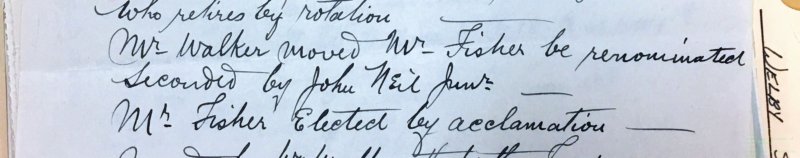 who retires by rotation
Mr Walker moved Mr Fisher be renominated
Seconded by John Neil Junr.
Mr Fisher Elected by acclamation
WELBY